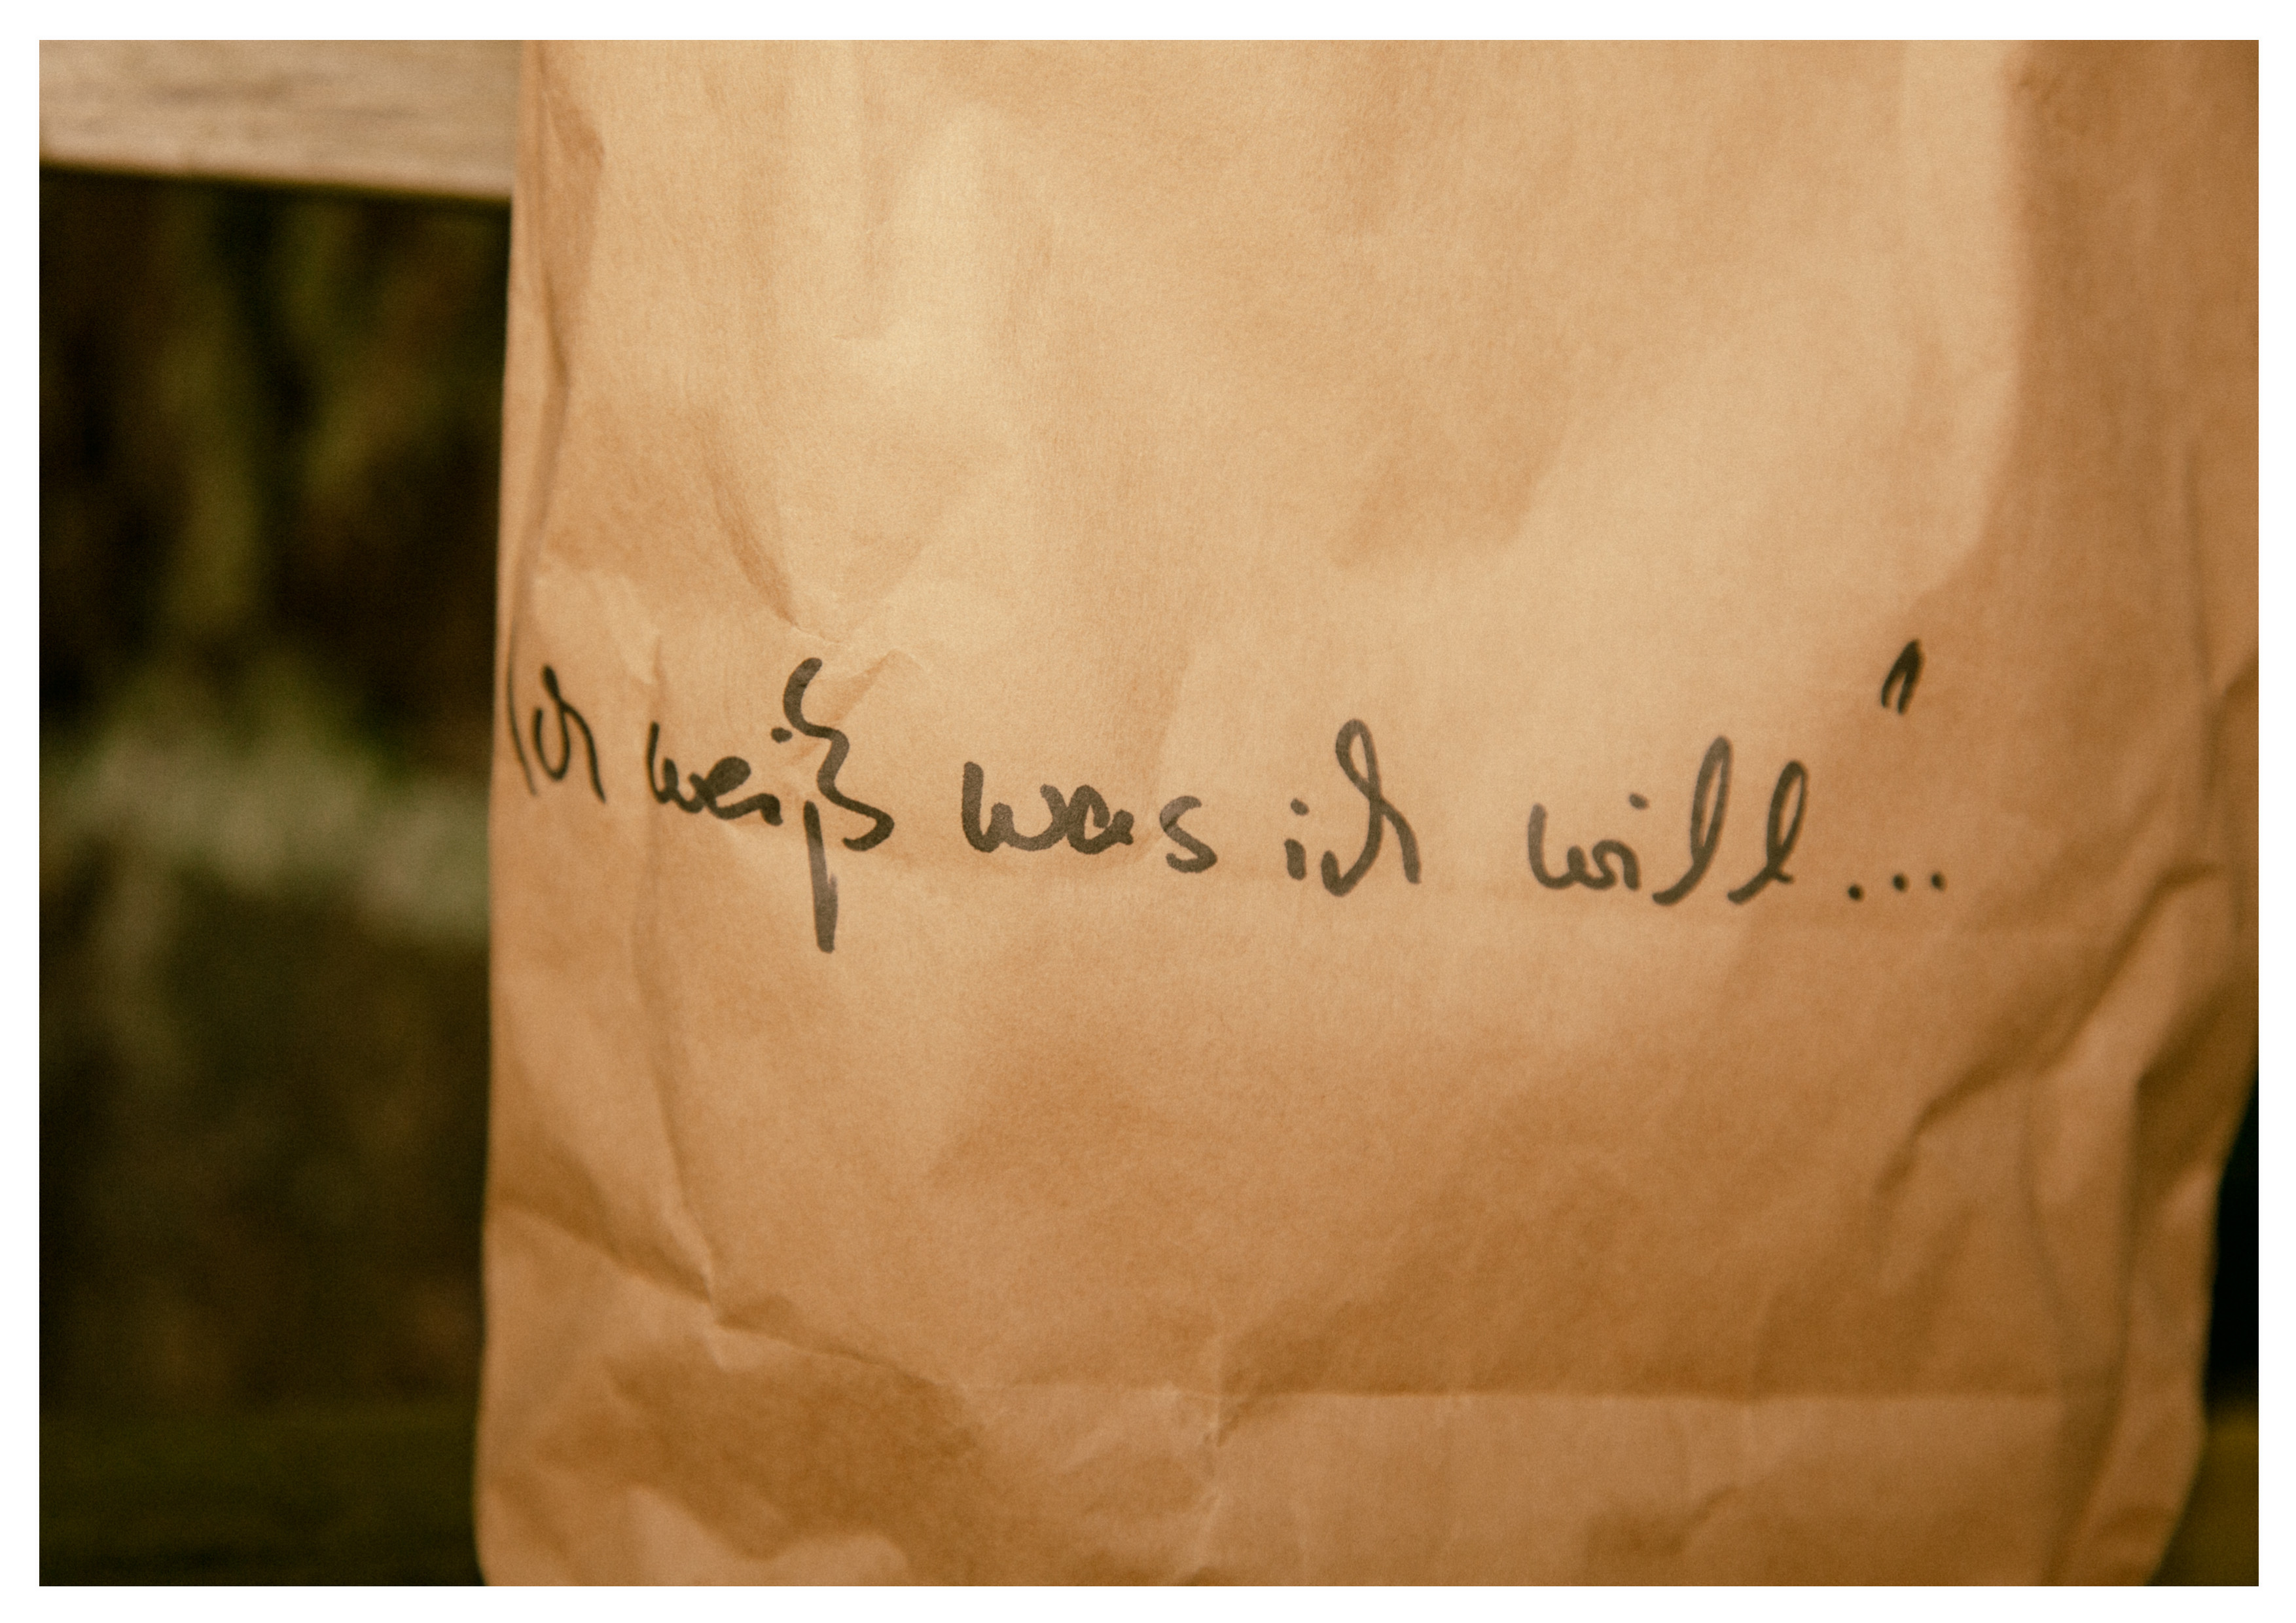 Ich weiß was ich will..."